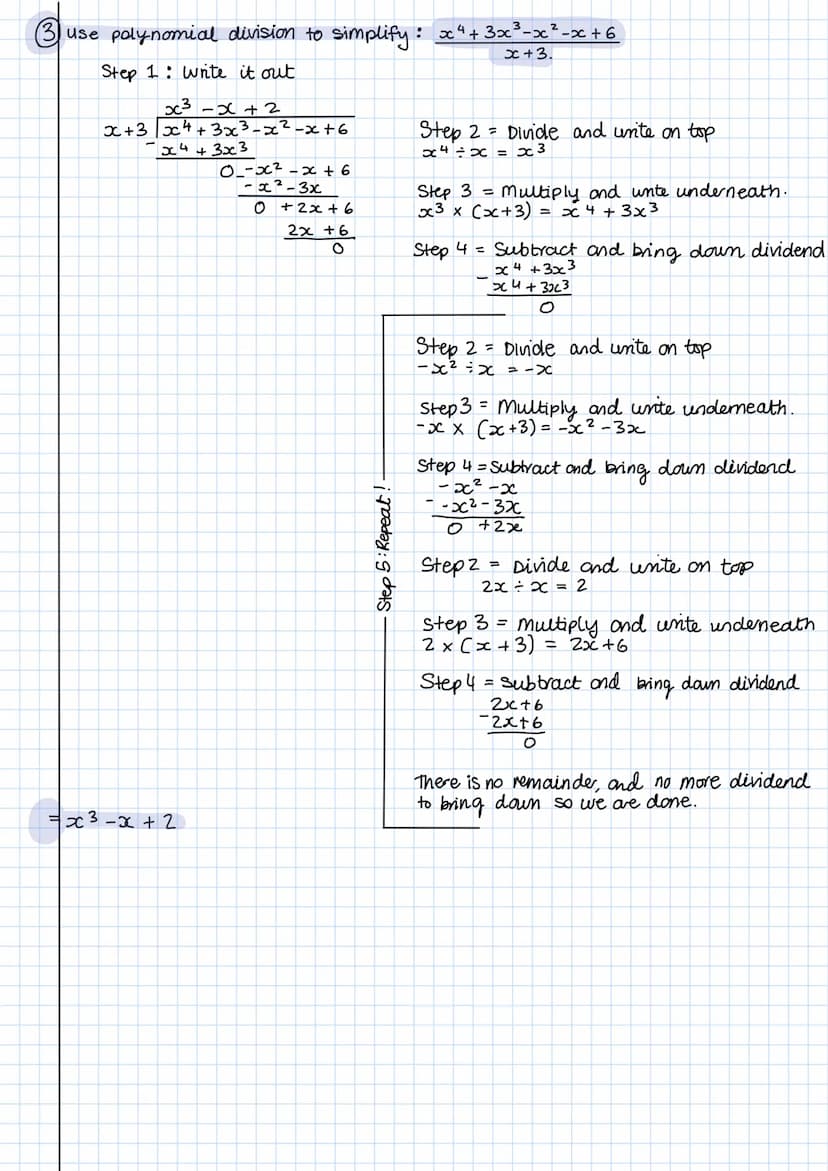 ③ use polynomial division to simplify: x⁴ + 3x³ - x² - x + 6
x + 3.
Step 1: Write it out
x³ - x + 2
x + 3 | x⁴ + 3x³ - x² - x + 6
- x⁴ + 3x³
0 - x² - x + 6
- x² - 3x
0 + 2x + 6
2x + 6
0
Step 2 = Divide and write on top
x⁴ ÷ x = x³
Step 3 = Multiply and write underneath.
x³ × (x+3) = x⁴ + 3x³
Step 4 = Subtract and bring down dividend
x⁴ + 3x³
- x⁴ + 3x³
0
Step 5: Repeat!
Step 2 = Divide and write on top
-x² ÷ x = -x
Step 3 = Multiply and write underneath.
-x × (x+3) = -x² - 3x
Step 4 = Subtract and bring down dividend
- x² - x
- -x² - 3x
0 + 2x
Step 2 = Divide and write on top
2x ÷ x = 2
Step 3 = Multiply and write undeneath
2 × (x + 3) = 2x + 6
Step 4 = Subtract and bring down dividend
2x + 6
- 2x + 6
0
There is no remainder, and no more dividend
to bring down so we are done.
= x³ - x + 2